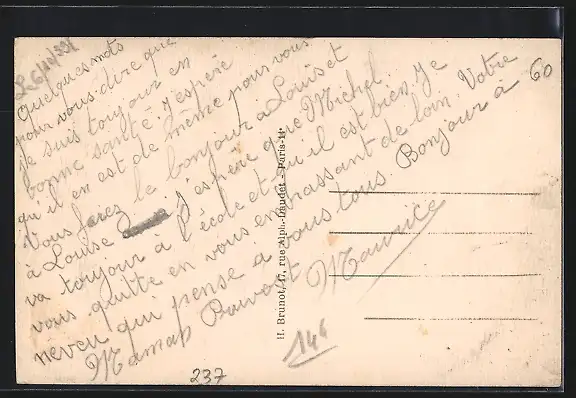 Le 6/10/33
Quelques mots
pour vous dire que
je suis toujour en
bonne santé. J'espère
qu'il en est de même pour vous
Vous ferez le bonjour à Louis et
a Louise J'espère que Michel
va toujour à l'école et qu'il est bien. Je
vous quitte en vous embrassant de loin. Votre
neveu qui pense a vous tous. Bonjour a
Maman Maurice
H. Brunot, 17, rue Alph.-Daudet - Paris-14e
60
144
237